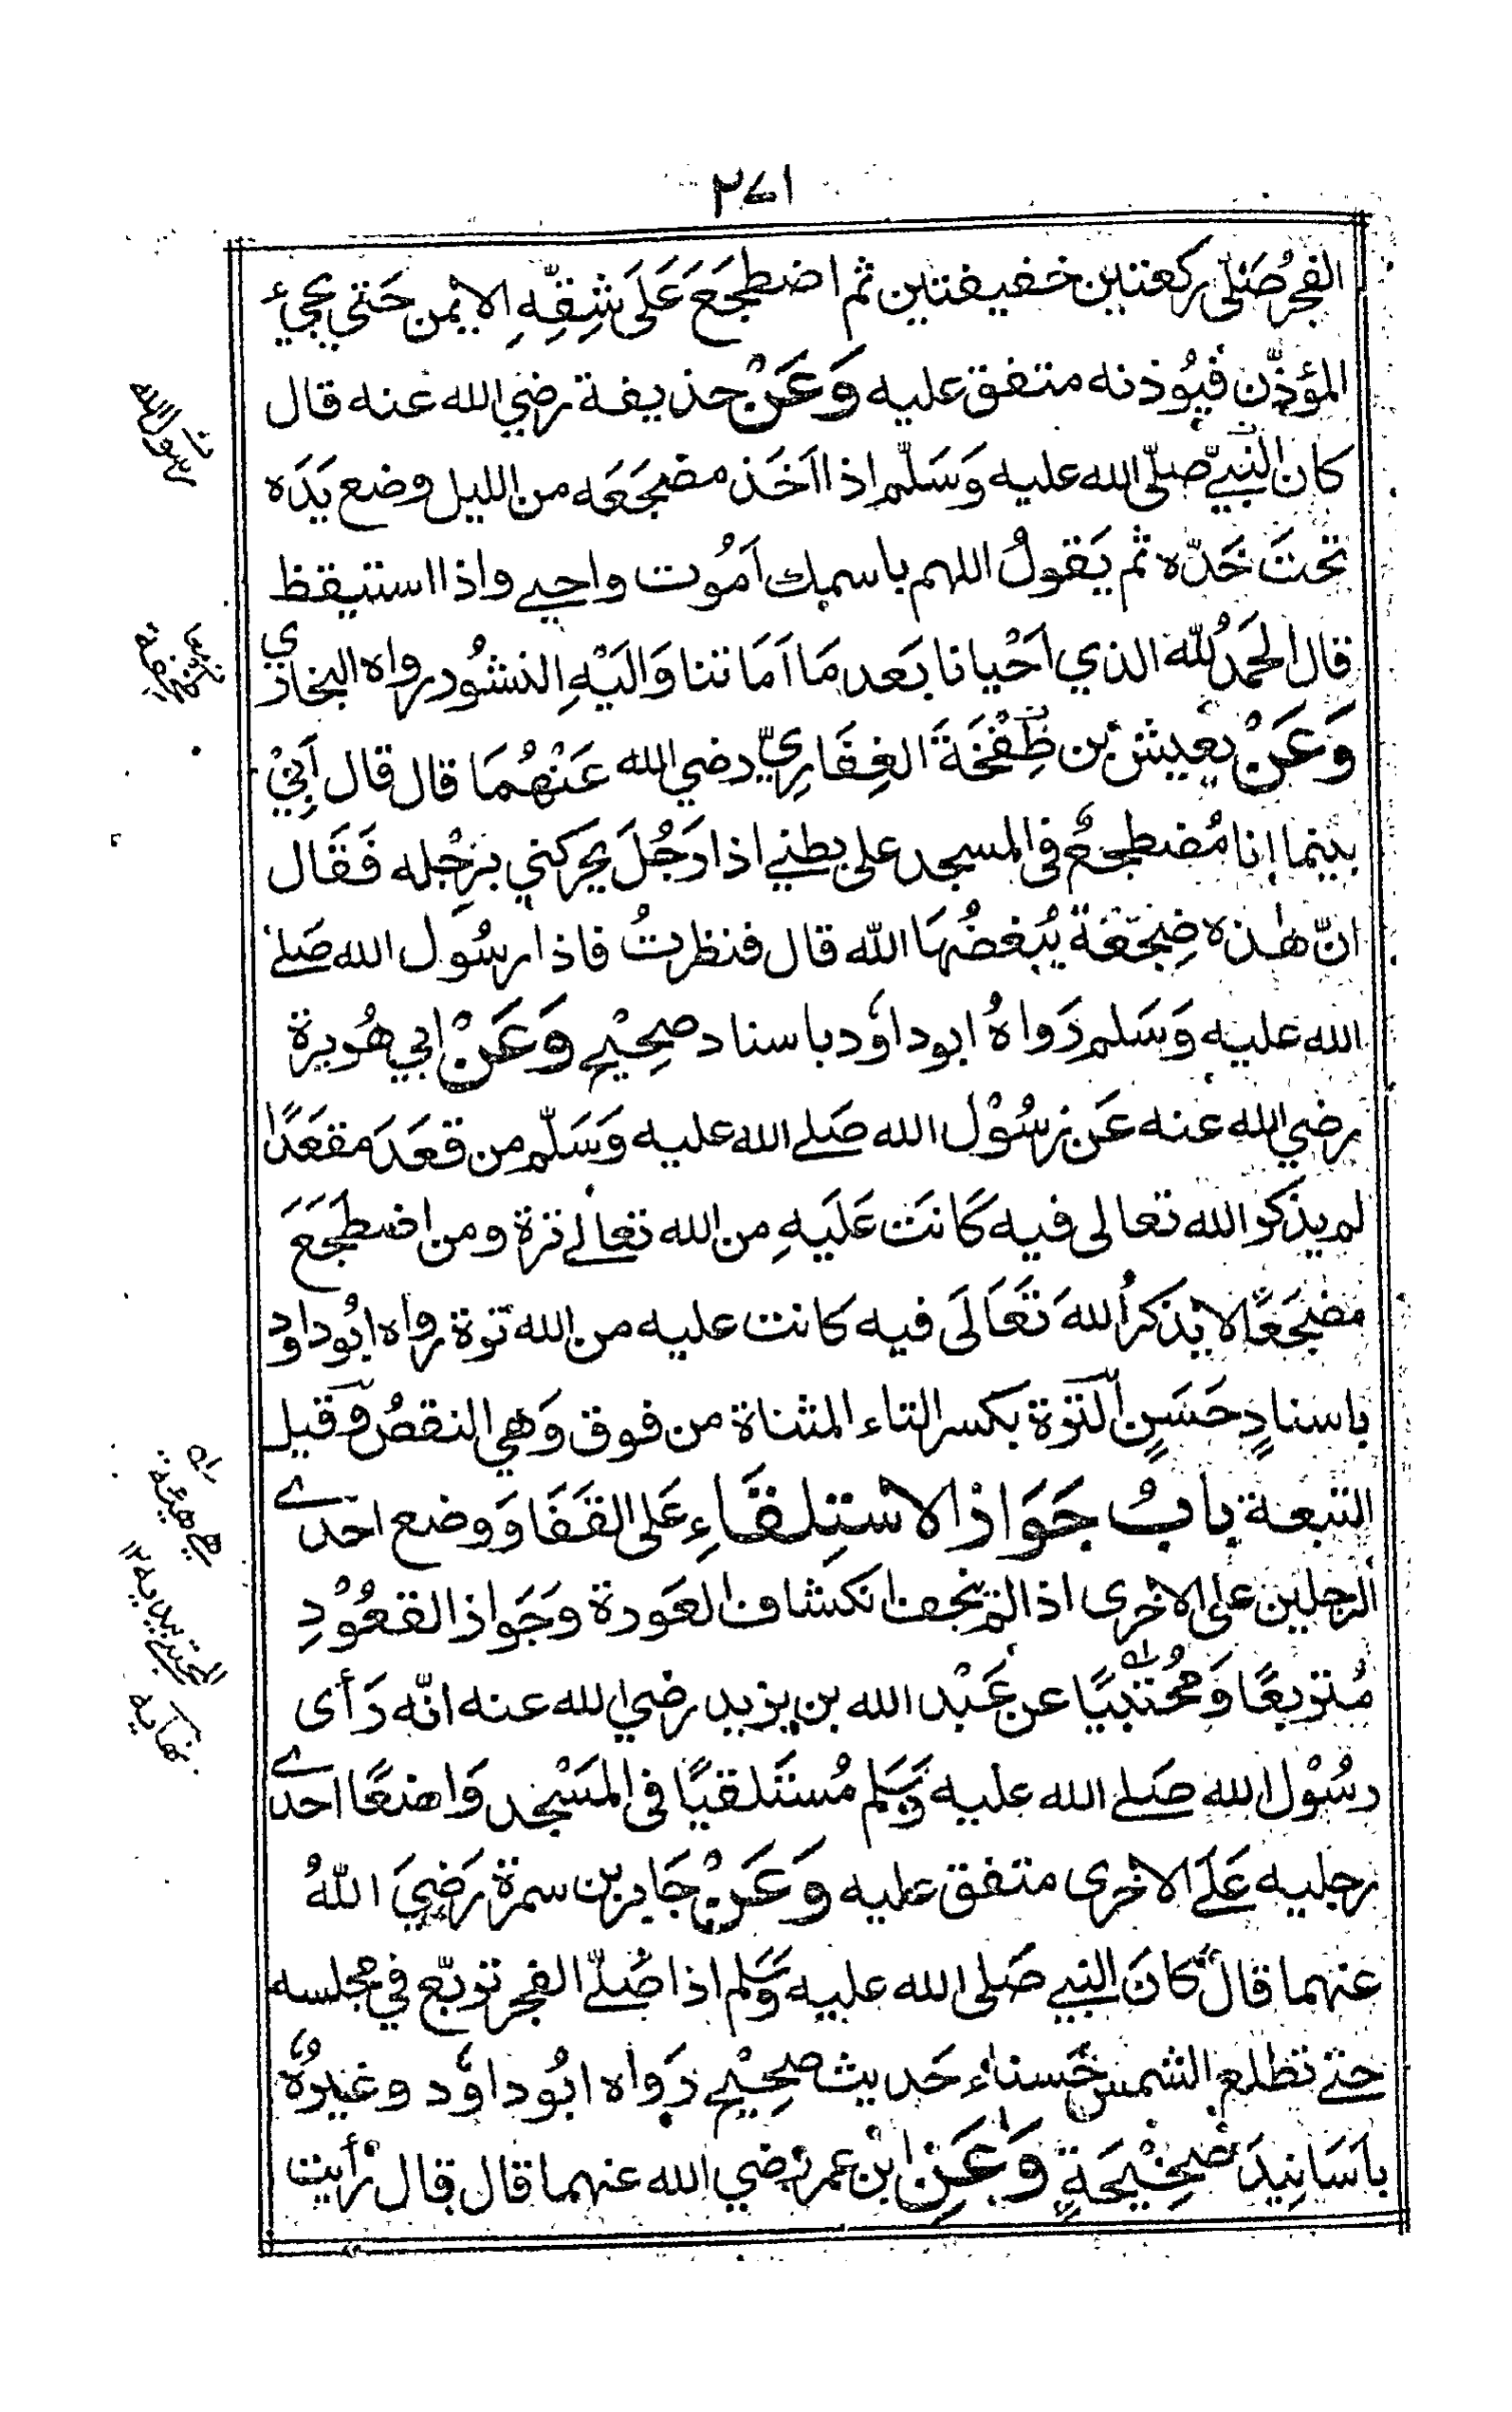 ٢٧١
الفجر صَلّى ركعتين خفيفتين ثم اضطجَعَ عَلَى شِقِّهِ الايمن حَتى يجيء
المؤذّن فيُوذنه متفق عليه وَعَنْ حذيفة رضي الله عنه قال
كان النبيّ صلّى الله عليه وَسَلّم اذا اَخَذ مضجَعَه من الليل وضع يَدَه
تحتَ خَدّه ثم يَقولُ اللهم باسمك اَمُوت واحيے واذا استيقظ
قال الحمدُ لله الذي اَحْيانا بَعد مَا اَمَاتنا وَاليْهِ النشُور رواه البخاري
وَعَنْ يعيش بن طِخْفَةَ الغِفَارِيّ رضي الله عَنْهُمَا قال قال اَبِيْ
بينما انا مُضطجعٌ في المسجد على بطني اذا رَجُلَ يحركني برِجْله فَقَال
انّ هٰذه ضِجْعَة يُبْغضُهَا الله قال فنظرتُ فاذا رسُول الله صَلے
الله عليه وَسَلم رَواهُ ابو داوٗد باسناد صحِيْح وَعَنْ ابي هُريرة
رضي الله عنه عَن رَسُوْل الله صَلے الله عليه وَسَلّم من قعَدَ مقعَدًا
لم يذكر الله تعالى فيه كَانتَ عَلَيهِ من الله تعالے ترة ومن اضطَجَعَ
مضجَعًا لا يذكرُ اللهَ تَعَالَى فيه كانت عليه من الله ترة رواه ابُو داود
باسنادٍ حَسَنٍ الترة بكسر التاء المثناة من فوق وَهي النقصُ وقيل
التبعة بابُ جَوَاز الاستِلقَاءِ عَلى القَفَا وَوضع احدے
الرجلين على الاخرى اذا لم يخف انكشاف العَورة وجَواز القعُوْدِ
مُتربعًا وَمحُتبيًا عن عَبْد الله بن يزيد رضي الله عنه انّه رَأى
رسُوْل الله صَلے الله عليه وَسَلم مُستَلقيًا في المسْجد وَاضعًا احدے
رجليه عَلَى الاخرى متفق عليه وَعَنْ جَابر بن سمرة رَضيَ اللهُ
عنهما قال كانَ النبي صَلى الله عليه وسَلم اذا صَلّى الفجر تربّع في مجلسه
حتى تطلع الشمس حَسناء حَديث صحِيْح رَواه ابُو داوٗد وغيرُهٗ
باَسَانِيدَ صَحِيْحَةٍ وَعَنِ ابْن عمر رضي الله عنهما قال قال رأيت
رسول الله